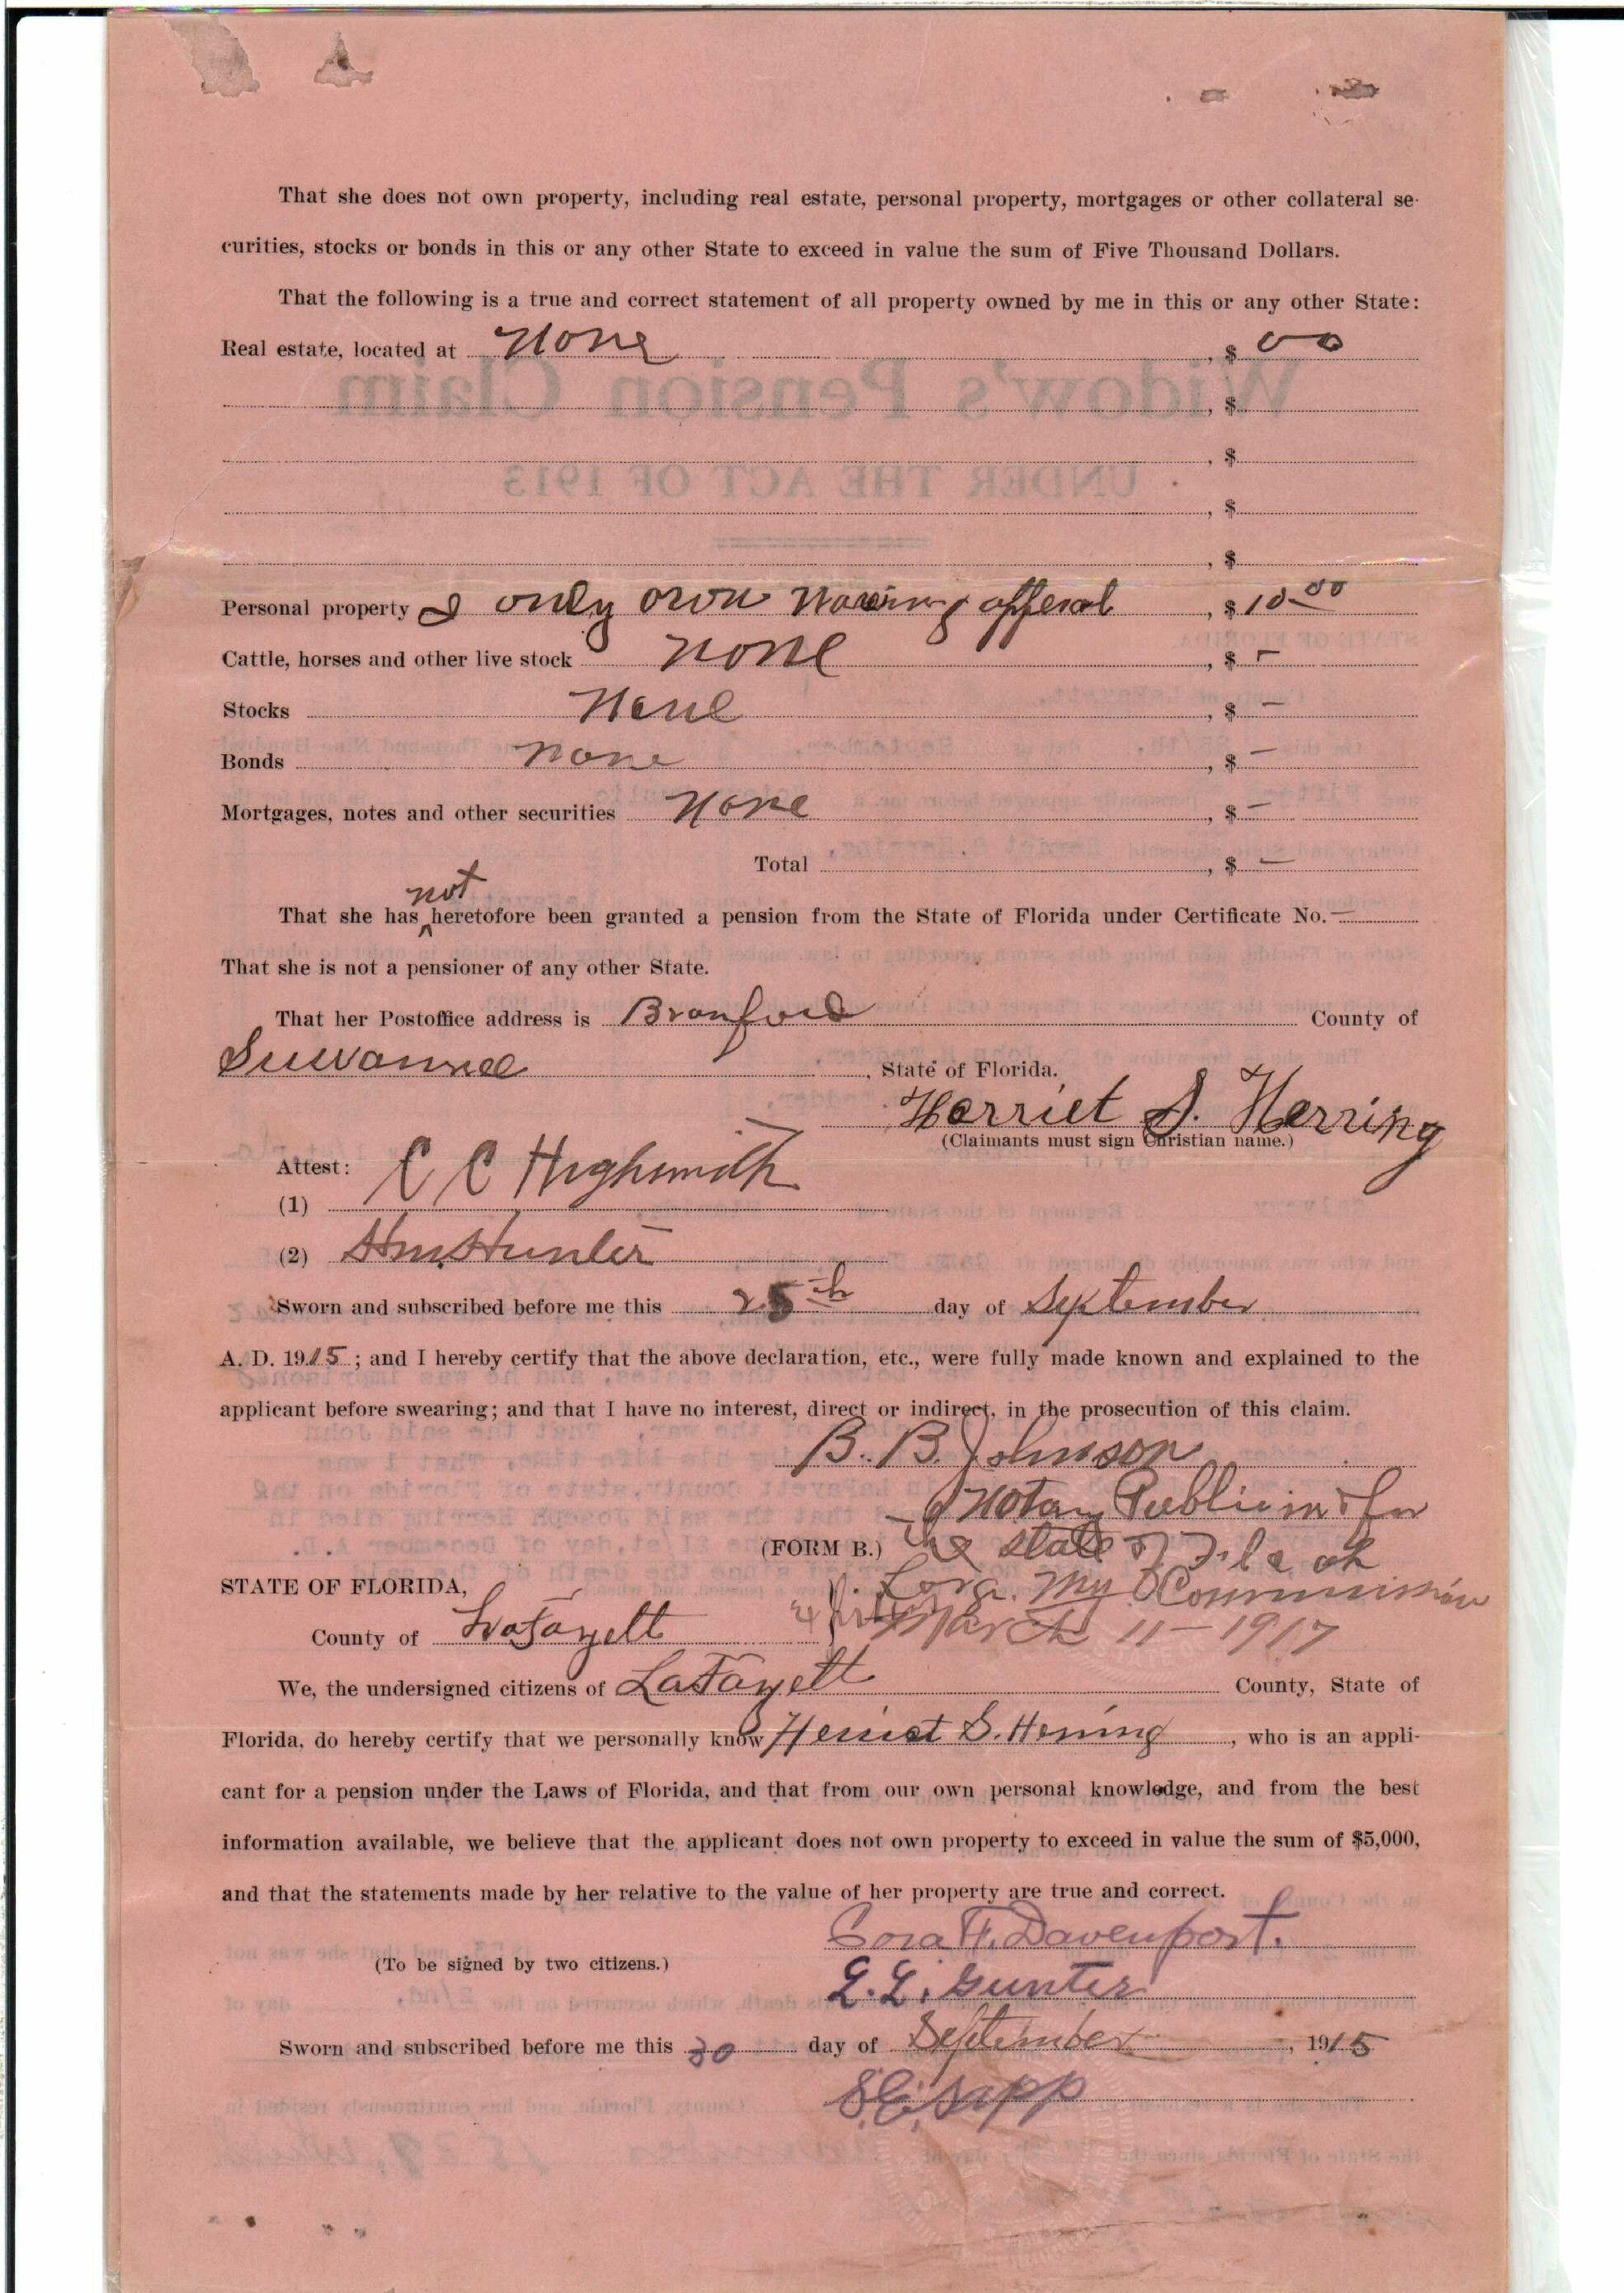 That she does not own property, including real estate, personal property, mortgages or other collateral se-
curities, stocks or bonds in this or any other State to exceed in value the sum of Five Thousand Dollars.
That the following is a true and correct statement of all property owned by me in this or any other State:
Real estate, located at None, $ 00
Widow's Pension Claim
, $
, $
UNDER THE ACT OF 1913
, $
, $
Personal property I only own waring apperal, $ 10.00
Cattle, horses and other live stock None, $ -
Stocks None, $ -
Bonds None, $ -
Mortgages, notes and other securities None, $ -
Total, $ -
not
That she has ^ heretofore been granted a pension from the State of Florida under Certificate No. -
That she is not a pensioner of any other State.
That her Postoffice address is Branford County of
Suwannee, State of Florida.
Harriet S. Herring
(Claimants must sign Christian name.)
Attest:
(1) C C Highsmith
(2) Hunter
Sworn and subscribed before me this 25th day of September
A. D. 1915; and I hereby certify that the above declaration, etc., were fully made known and explained to the
applicant before swearing; and that I have no interest, direct or indirect, in the prosecution of this claim.
B. B. Johnson
Notary Public in & for
(FORM B.) the State of Fla at
STATE OF FLORIDA, Large. My Commission
County of LaFayett March 11-1917
We, the undersigned citizens of LaFayett County, State of
Florida, do hereby certify that we personally know Herriet S. Herring, who is an appli-
cant for a pension under the Laws of Florida, and that from our own personal knowledge, and from the best
information available, we believe that the applicant does not own property to exceed in value the sum of $5,000,
and that the statements made by her relative to the value of her property are true and correct.
Cora H. Davenport.
(To be signed by two citizens.)
L. L. Gunter
Sworn and subscribed before me this 30 day of September, 1915
Sapp